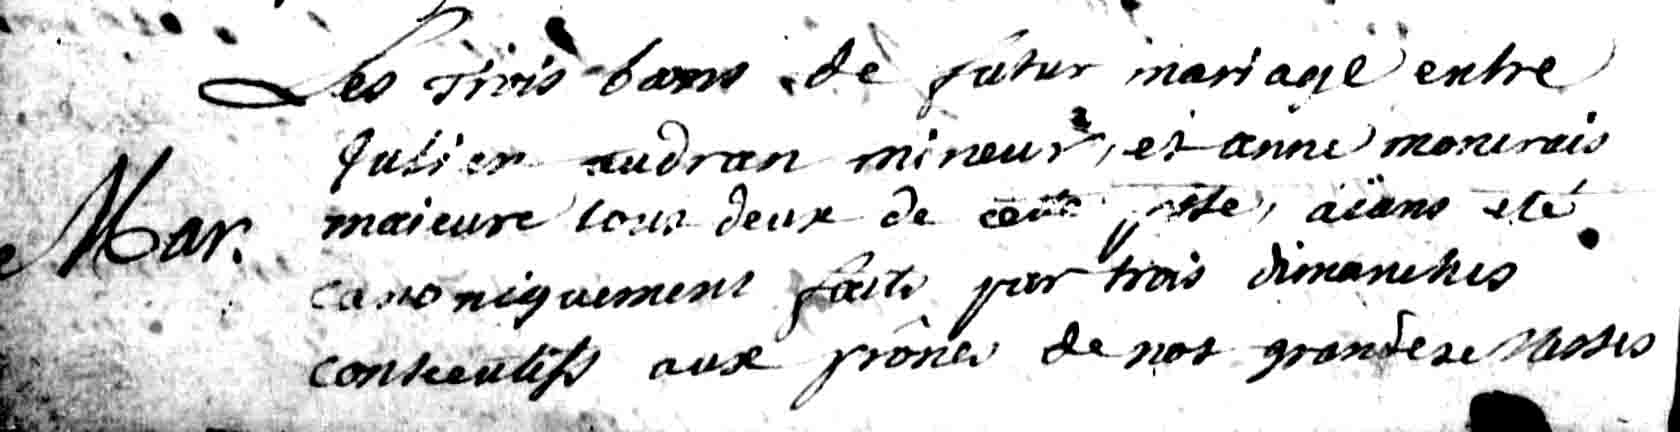 Les trois bans de futur mariage entre
Julien audran mineur, et anne monerais
Mar. maieure tous deux de cette psse, aïans eté
canoniquement faits par trois dimanches
consecutifs aux prônes de nos grandese Messes